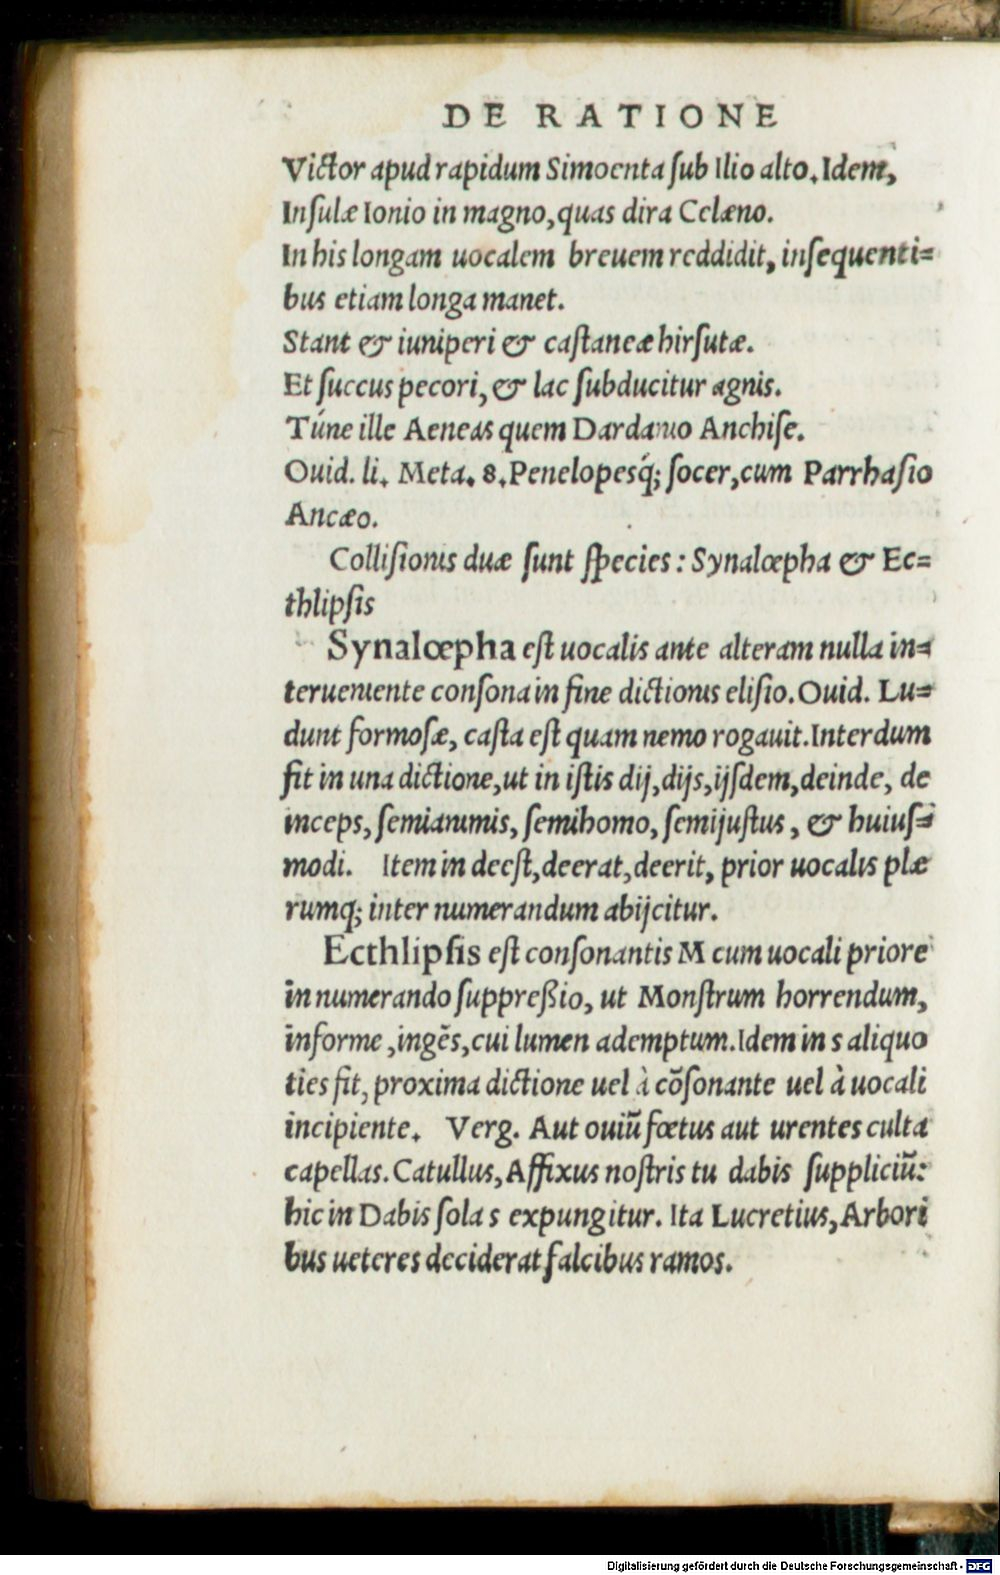 DE RATIONE
Victor apud rapidum Simoenta ſub Ilio alto. Idem,
Inſulæ Ionio in magno, quas dira Celæno.
In his longam uocalem breuem reddidit, inſequenti=
bus etiam longa manet.
Stant & iuniperi & caſtaneæ hirſutæ.
Et ſuccus pecori, & lac ſubducitur agnis.
Túne ille Aeneas quem Dardanio Anchiſe.
Ouid. li. Meta. 8. Penelopesq́; ſocer, cum Parrhaſio
Ancæo.
Colliſionis duæ ſunt ſpecies: Synalœpha & Ec=
thlipſis
Synalœpha eſt uocalis ante alteram nulla in=
terueniente conſona in fine dictionis eliſio. Ouid. Lu=
dunt formoſæ, caſta eſt quam nemo rogauit. Interdum
fit in una dictione, ut in iſtis dij, dijs, ijſdem, deinde, de
inceps, ſemianimis, ſemihomo, ſemijuſtus, & huiuſ=
modi. Item in deeſt, deerat, deerit, prior uocalis plæ
rumq; inter numerandum abijcitur.
Ecthlipſis eſt conſonantis M cum uocali priore
in numerando ſuppreßio, ut Monſtrum horrendum,
informe, ingẽs, cui lumen ademptum. Idem in s aliquo
ties fit, proxima dictione uel à cõſonante uel à uocali
incipiente. Verg. Aut ouiũ fœtus aut urentes culta
capellas. Catullus, Affixus noſtris tu dabis ſuppliciũ:
hic in Dabis ſola s expungitur. Ita Lucretius, Arbori
bus ueteres deciderat falcibus ramos.
Digitalisierung gefördert durch die Deutsche Forschungsgemeinschaft - DFG